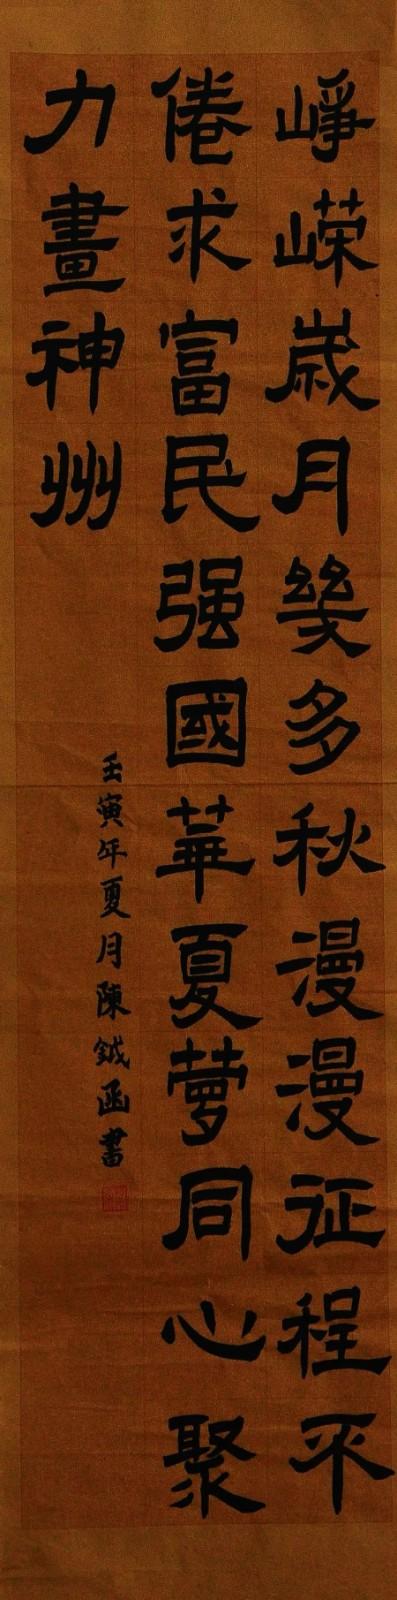 崢嵘歲月幾多秋漫漫征程不
倦求富民强國華夏夢同心聚
力畫神州
壬寅年夏月陳函書